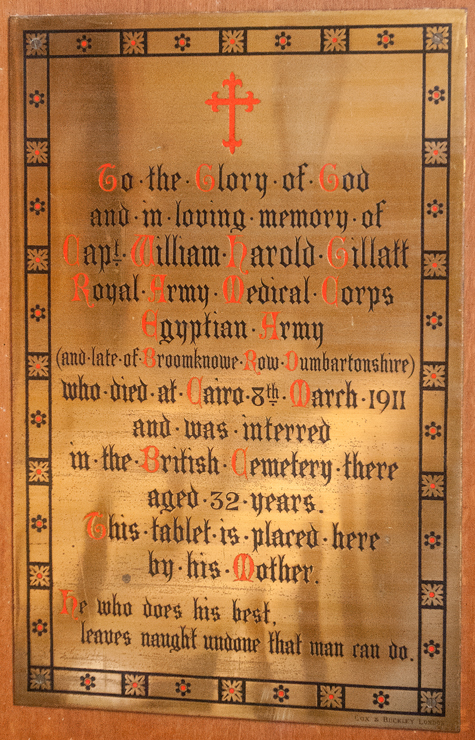 To · the · Glory · of · God
and · in · loving · memory · of
Capt. · William · Harold · Gillatt
Royal · Army · Medical · Corps
Egyptian · Army
(and · late · of · Broomknowe · Row · Dumbartonshire)
who · died · at · Cairo · 8th · March · 1911
and · was · interred
in · the · British · Cemetery · there
aged · 32 · years.
This · tablet · is · placed · here
by · his · Mother.
He who does his best,
leaves naught undone that man can do.
Cox & Buckley London